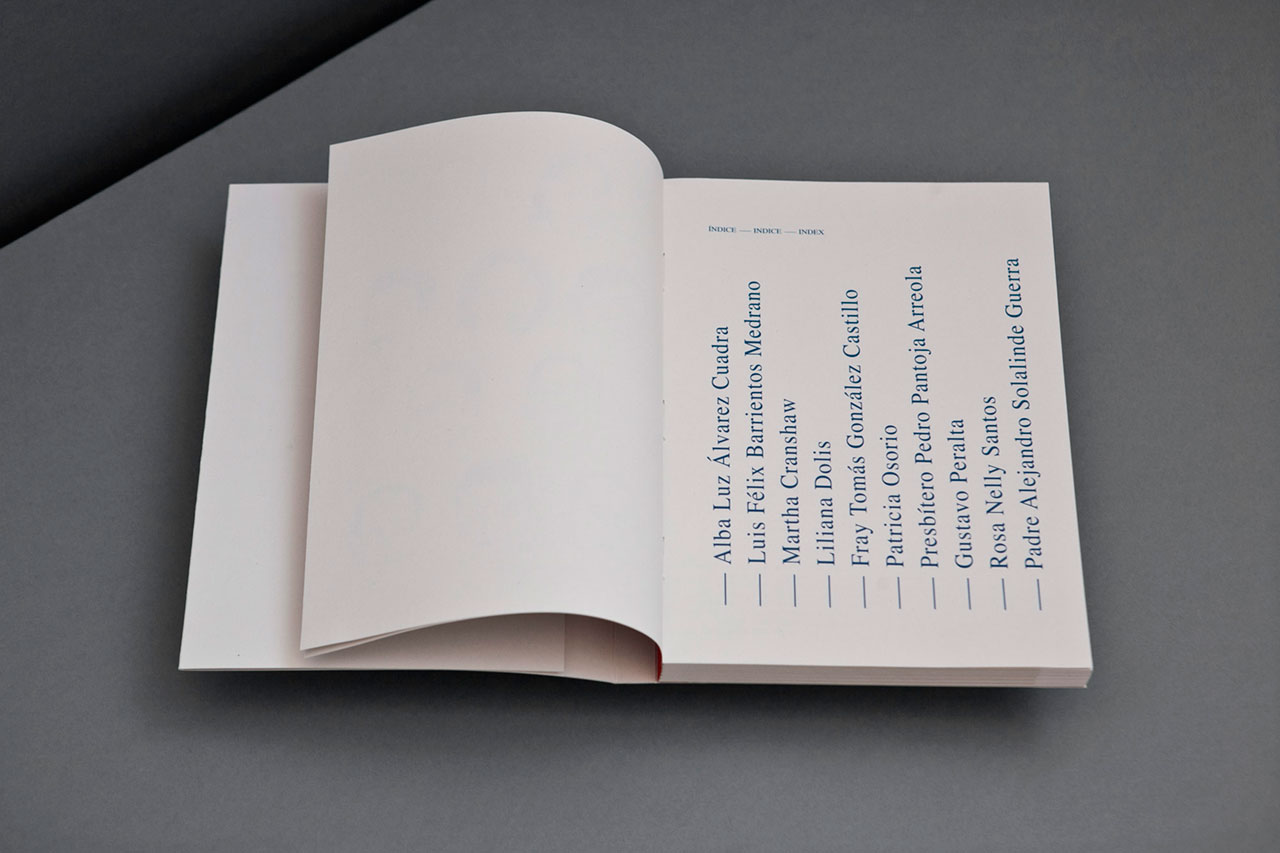 ÍNDICE — INDICE — INDEX
— Alba Luz Álvarez Cuadra
— Luis Félix Barrientos Medrano
— Martha Cranshaw
— Liliana Dolis
— Fray Tomás González Castillo
— Patricia Osorio
— Presbítero Pedro Pantoja Arreola
— Gustavo Peralta
— Rosa Nelly Santos
— Padre Alejandro Solalinde Guerra